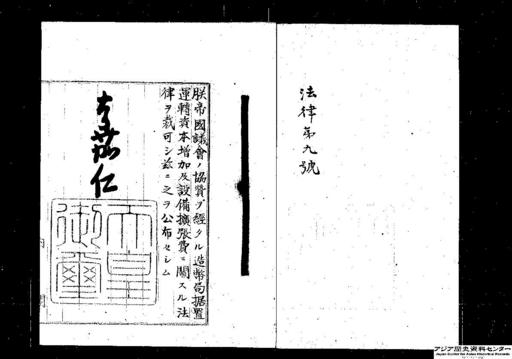 法律第九號
朕帝國議會ノ協贊ヲ經タル造幣局据置
運轉資本增加及設備擴張費ニ關スル法
律ヲ裁可シ玆ニ之ヲ公布セシム
嘉仁
天皇
御璽
アジア歴史資料センター
Japan Center for Asian Historical Records